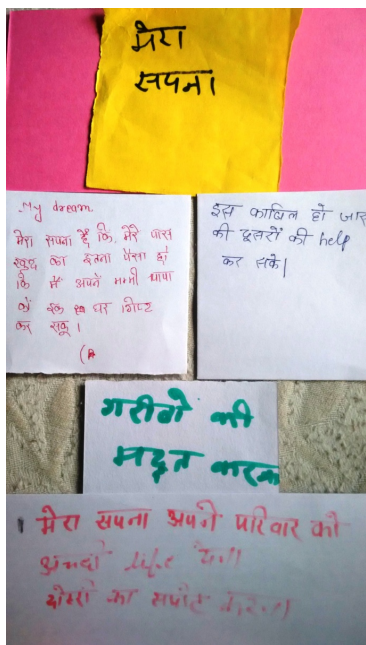 मेरा
सपना
My dream
मेरा सपना है कि मेरे पास
खुद का इतना पैसा हो
कि मैं अपने मम्मी पापा
को एक घर गिफ्ट
कर सकू।
इस काबिल हो जाए
की दूसरों की help
कर सके।
गरीबो की
मदत करना
मेरा सपना अपने परिवार को
अच्छी life देना
का सपोट करना